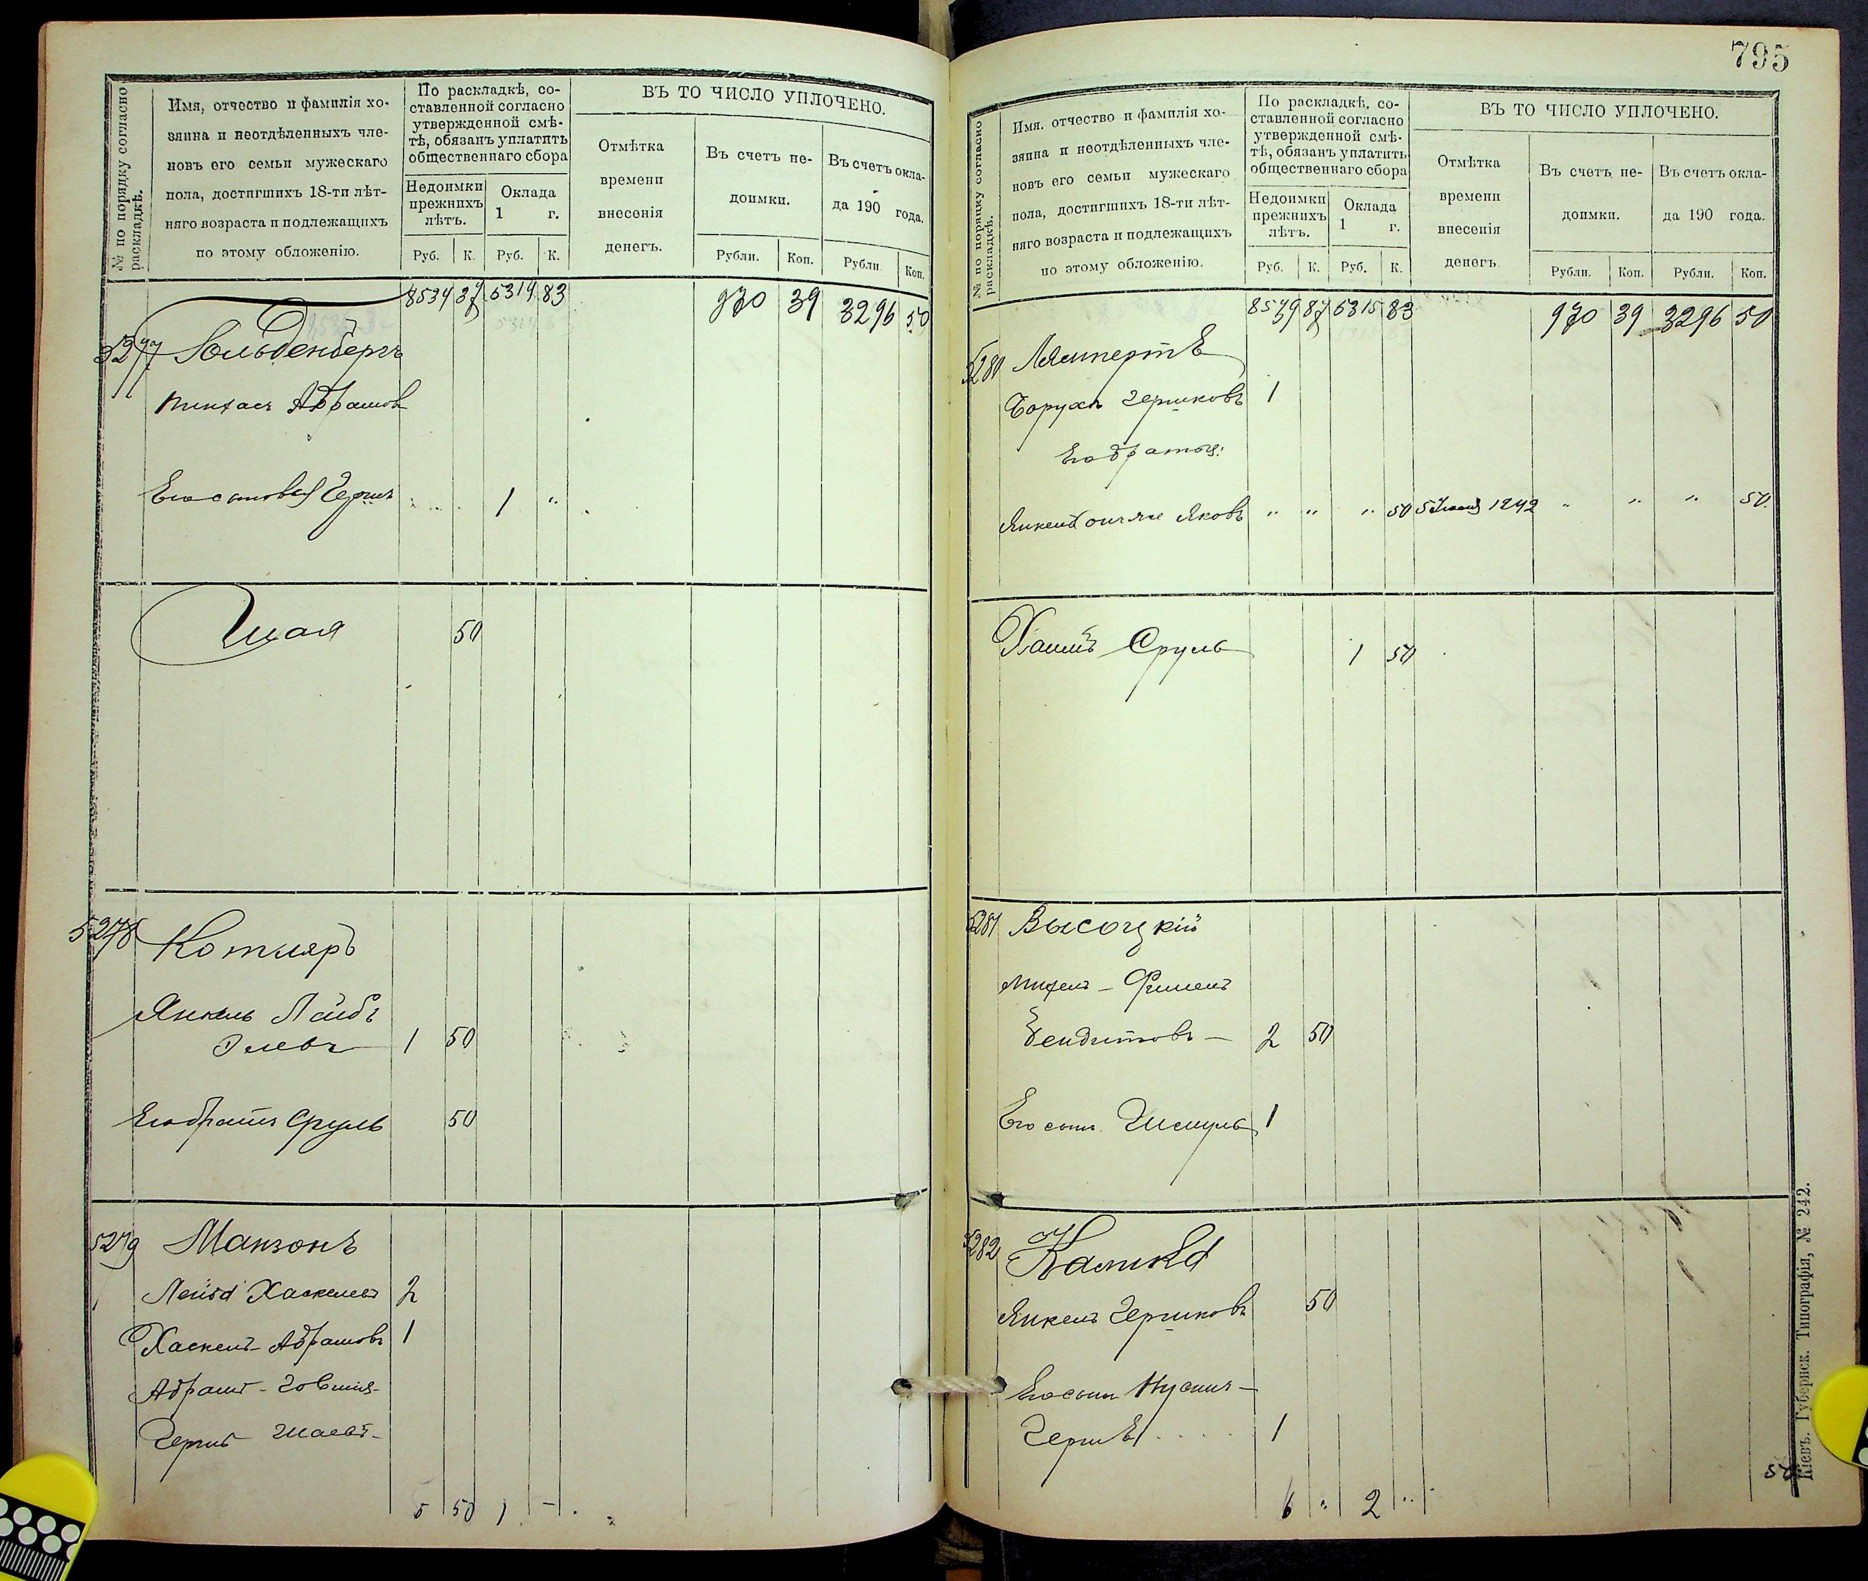 № по порядку согласно раскладкѣ.
Имя, отчество и фамилія хо-
зяина и неотдѣленныхъ чле-
новъ его семьи мужескаго
пола, достигшихъ 18-ти лѣт-
няго возраста и подлежащихъ
по этому обложенію.
По раскладкѣ, со-
ставленной согласно
утвержденной смѣ-
тѣ, обязанъ уплатить
общественнаго сбора
Недоимки
прежнихъ
лѣтъ.
Оклада
1 г.
Руб. К. Руб. К.
ВЪ ТО ЧИСЛО УПЛОЧЕНО.
Отмѣтка
времени
внесенія
денегъ.
Въ счетъ не-
доимки.
Въ счетъ окла-
да 190 года.
Рубли. Коп. Рубли. Коп.
8534 37 5314 83 970 39 3296 50
5277 Гольденбергъ
Пинхасъ Абрамов
Его сыновья Гершъ 1 "
Шая 50
5278 Котляръ
Янкель Лейбъ
1 50
Его братъ Сруль 50
5279 Манзонъ
Лейба Хаскелевъ 2
Хаскель Абрамовъ 1
Абрамъ
Гершъ
5 50 1 -
795
№ по порядку согласно раскладкѣ.
Имя, отчество и фамилія хо-
зяина и неотдѣленныхъ чле-
новъ его семьи мужескаго
пола, достигшихъ 18-ти лѣт-
няго возраста и подлежащихъ
по этому обложенію.
По раскладкѣ, со-
ставленной согласно
утвержденной смѣ-
тѣ, обязанъ уплатить
общественнаго сбора
Недоимки
прежнихъ
лѣтъ.
Оклада
1 г.
Руб. К. Руб. К.
ВЪ ТО ЧИСЛО УПЛОЧЕНО.
Отмѣтка
времени
внесенія
денегъ.
Въ счетъ не-
доимки.
Въ счетъ окла-
да 190 года.
Рубли. Коп. Рубли. Коп.
8539 87 5315 83 970 39 3296 50
5280 Лямпертъ
Борухъ Гершковъ 1
Его братья:
Янкель онъ же Яковъ " " " 50 1242 " " " 50
Хаимъ Сруль 1 50
5281 Высоцкій
Михель - Фишель
2 50
Его сынъ Шмуль 1
5282
Янкель Гершковъ 50
Его сынъ Нусинъ -
Гершъ 1
6 " 2 "
50
Кіевъ. Губернск. Типографія, № 242.